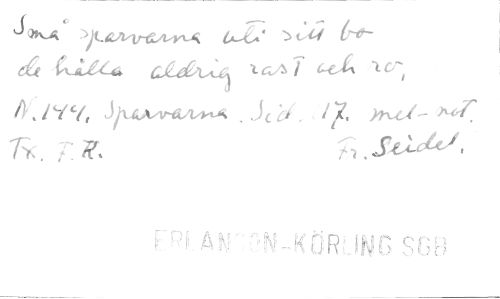 Små sparvarna uti sitt bo
de hålla aldrig rast och ro,
N.144. Sparvarna. Sid. 17. mel-not.
Tx. F. K. Fr. Seidel.
ERLANSON-KÖRLING SGB